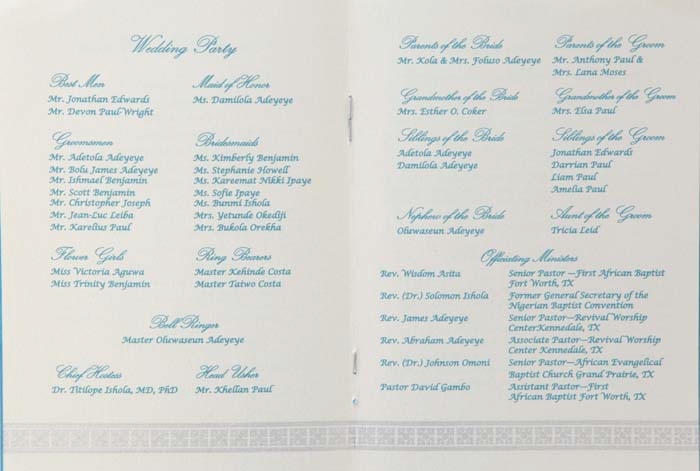 Wedding Party
Best Men
Mr. Jonathan Edwards
Mr. Devon Paul-Wright
Maid of Honor
Ms. Damilola Adeyeye
Groomsmen
Mr. Adetola Adeyeye
Mr. Bolu James Adeyeye
Mr. Ishmael Benjamin
Mr. Scott Benjamin
Mr. Christopher Joseph
Mr. Jean-Luc Leiba
Mr. Karelius Paul
Bridesmaids
Ms. Kimberly Benjamin
Ms. Stephanie Howell
Ms. Kareemat Nikki Ipaye
Ms. Sofie Ipaye
Ms. Bunmi Ishola
Mrs. Yetunde Okediji
Mrs. Bukola Orekha
Flower Girls
Miss Victoria Aguwa
Miss Trinity Benjamin
Ring Bearers
Master Kehinde Costa
Master Taiwo Costa
Bell Ringer
Master Oluwaseun Adeyeye
Chief Hostess
Dr. Titilope Ishola, MD, PhD
Head Usher
Mr. Khellan Paul
Parents of the Bride
Mr. Kola & Mrs. Foluso Adeyeye
Parents of the Groom
Mr. Anthony Paul &
Mrs. Lana Moses
Grandmother of the Bride
Mrs. Esther O. Coker
Grandmother of the Groom
Mrs. Elsa Paul
Siblings of the Bride
Adetola Adeyeye
Damilola Adeyeye
Siblings of the Groom
Jonathan Edwards
Darrian Paul
Liam Paul
Amelia Paul
Nephew of the Bride
Oluwaseun Adeyeye
Aunt of the Groom
Tricia Leid
Officiating Ministers
Rev. Wisdom Asita
Senior Pastor—First African Baptist
Fort Worth, TX
Rev. (Dr.) Solomon Ishola
Former General Secretary of the
Nigerian Baptist Convention
Rev. James Adeyeye
Senior Pastor—Revival Worship
CenterKennedale, TX
Rev. Abraham Adeyeye
Associate Pastor—Revival Worship
Center Kennedale, TX
Rev. (Dr.) Johnson Omoni
Senior Pastor—African Evangelical
Baptist Church Grand Prairie, TX
Pastor David Gambo
Assistant Pastor—First
African Baptist Fort Worth, TX